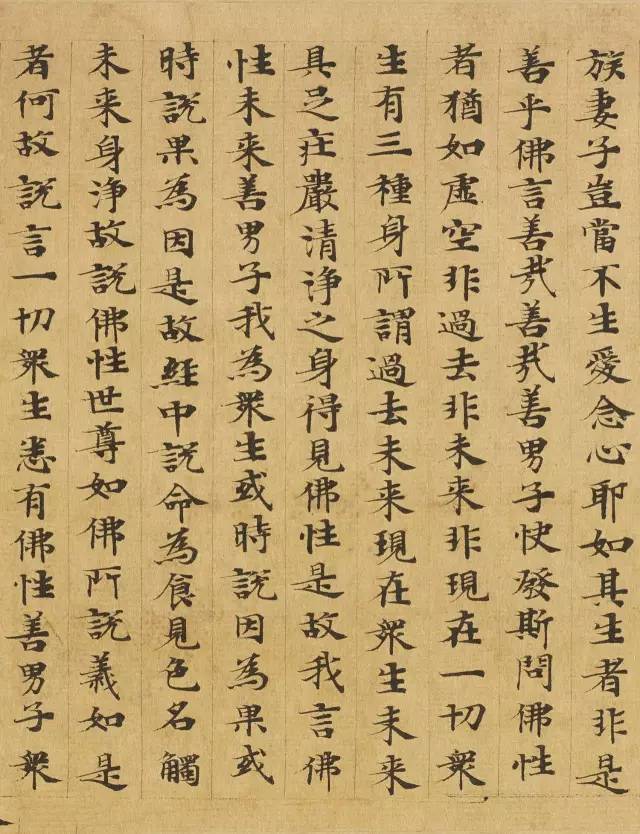 族妻子豈當不生愛念心耶如其生者非是
善乎佛言善哉善哉善男子快發斯問佛性
者猶如虛空非過去非未来非現在一切衆
生有三種身所謂過去未来現在衆生未来
具足莊嚴清淨之身得見佛性是故我言佛
性未来善男子我為衆生或時說因為果或
時說果為因是故經中說命為食見色名觸
未来身淨故說佛性世尊如佛所說義如是
者何故說言一切衆生悉有佛性善男子衆